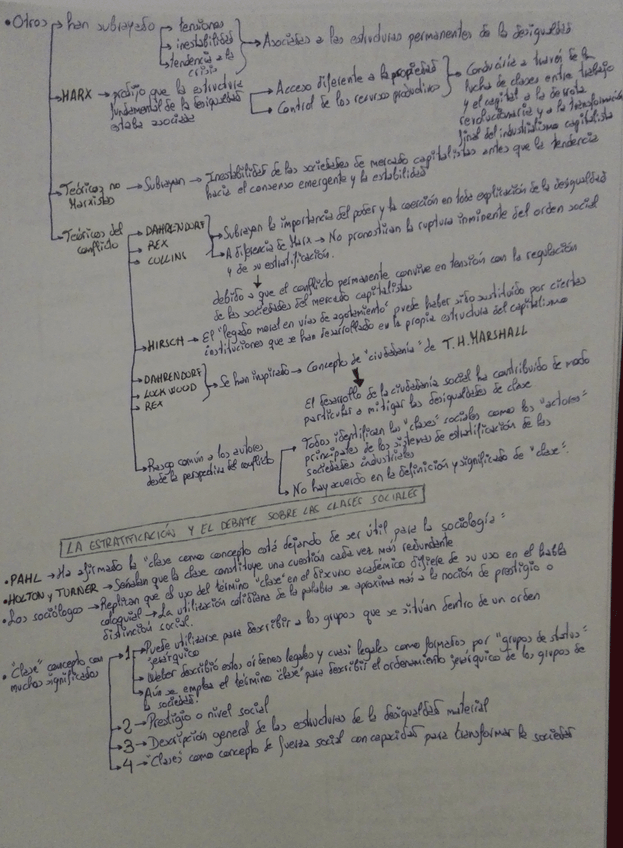 • Otros → han subrayado → tensiones
→ inestabilidad
→ tendencia a la crisis
→ Asociadas a las estructuras permanentes de la desigualdad
→ MARX → predijo que la estructura
fundamental de la desigualdad
estaba asociada
→ Acceso diferente a la propiedad
→ Control de los recursos productivos
→ Conduciría a través de la
lucha de clases entre trabajo
y el capital a la derrota
revolucionaria y a la transformación
final del industrialismo capitalista
→ Teóricos no
Marxistas
→ Subrayan → Inestabilidad de las sociedades de mercado capitalistas antes que la tendencia
hacia el consenso emergente y la estabilidad
→ Teóricos del
conflicto
→ DAHRENDORF
→ REX
→ COLLINS
→ Subrayan la importancia del poder y la coerción en toda explicación de la desigualdad
→ A diferencia de Marx → No pronostican la ruptura inminente del orden social
y de su estratificación.
debido a que el conflicto permanente convive en tensión con la regulación
de las sociedades del mercado capitalistas
→ HIRSCH → El "legado moral en vías de agotamiento" puede haber sido sustituido por ciertas
instituciones que se han desarrollado en la propia estructura del capitalismo
→ DAHRENDORF
→ LOCKWOOD
→ REX
→ Se han inspirado → Concepto de "ciudadanía" de T.H.MARSHALL
El desarrollo de la ciudadanía social ha contribuido de modo
particular a mitigar las desigualdades de clase
→ Rasgo común a los autores
desde la perspectiva del conflicto
→ Todos identifican las "clases" sociales como los "actores"
principales de los sistemas de estratificación de las
sociedades industriales
→ No hay acuerdo en la definición y significado de "clase".
LA ESTRATIFICACIÓN Y EL DEBATE SOBRE LAS CLASES SOCIALES
• PAHL → Ha afirmado la "clase como concepto está dejando de ser útil para la sociología"
• HOLTON y TURNER → Señalan que la clase constituye una cuestión cada vez más redundante
• Los sociólogos → Replican que el uso del término "clase" en el discurso académico difiere de su uso en el habla
coloquial → La utilización cotidiana de la palabra se aproxima más a la noción de prestigio o
distinción social.
• "Clase" concepto con
muchos significados
→ 1 → Puede utilizarse para describir a los grupos que se sitúan dentro de un orden
jerárquico
→ Weber describió estos órdenes legales y cuasi legales como formados por "grupos de status"
→ Aún se emplea el término "clase" para describir el ordenamiento jerárquico de los grupos de
la sociedad.
→ 2 → Prestigio o nivel social
→ 3 → Descripción general de las estructuras de la desigualdad material
→ 4 → "Clases" como concepto de fuerza social con capacidad para transformar la sociedad